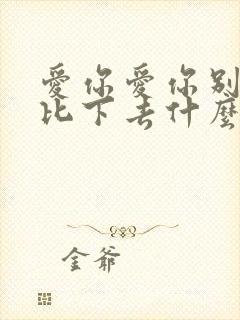 愛你愛你别
比下去什麼
金爺